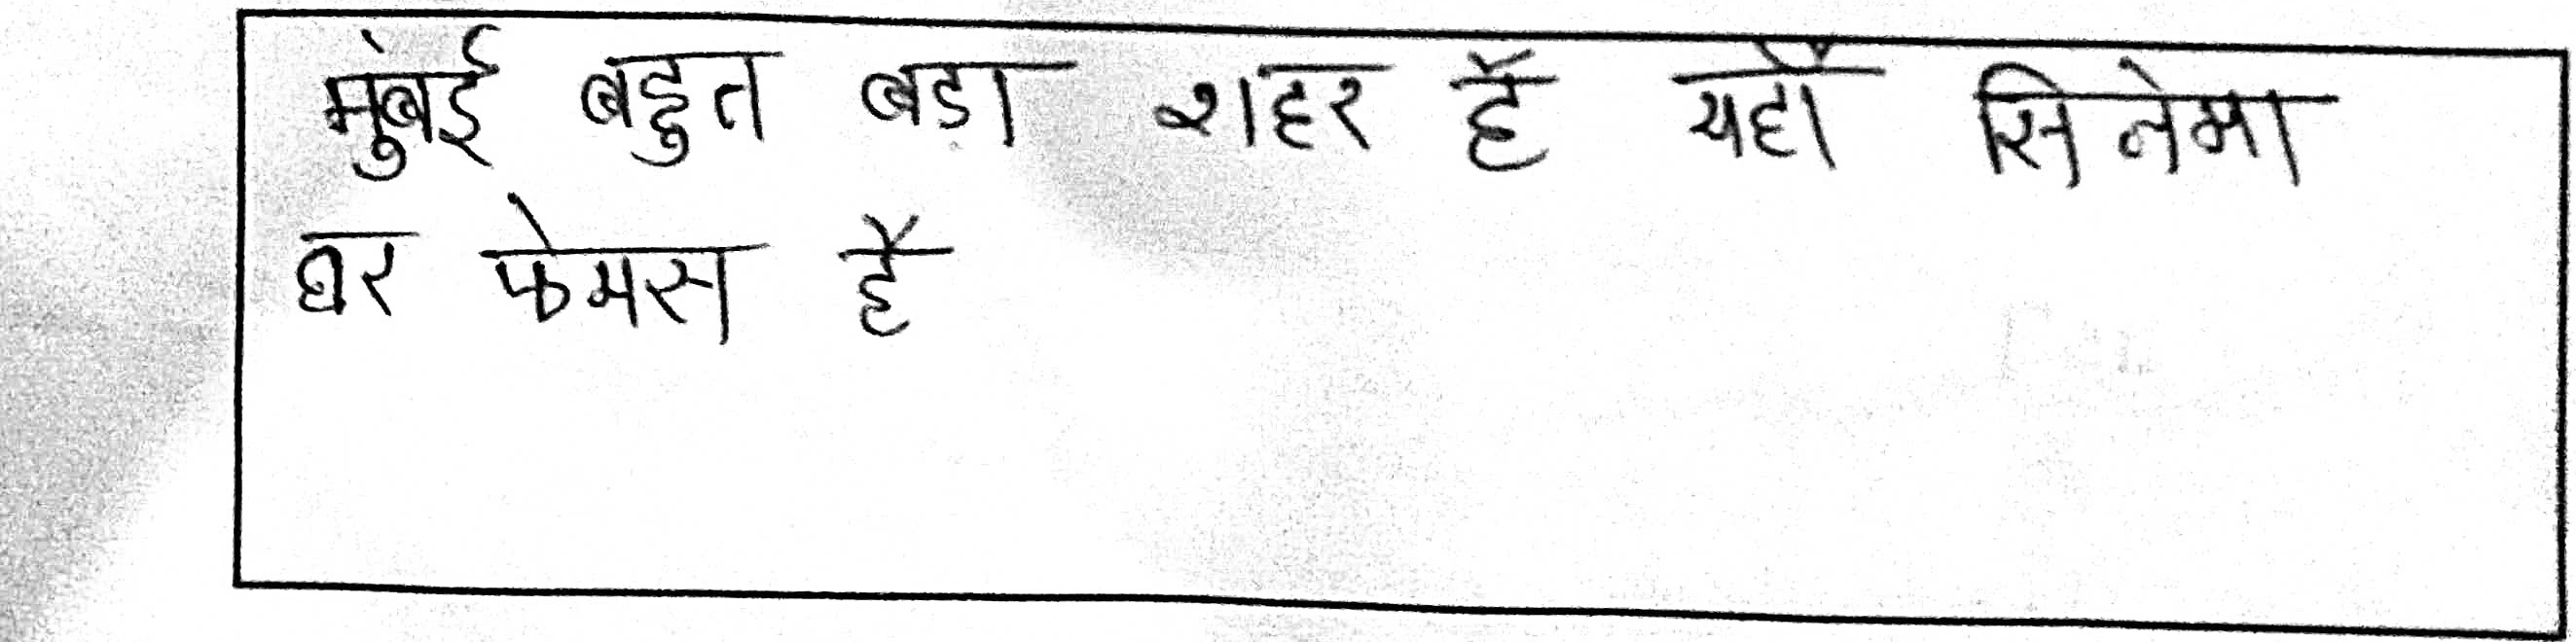 मुंबई बहुत बड़ा शहर हैं यहाँ सिनेमा
घर फेमस है